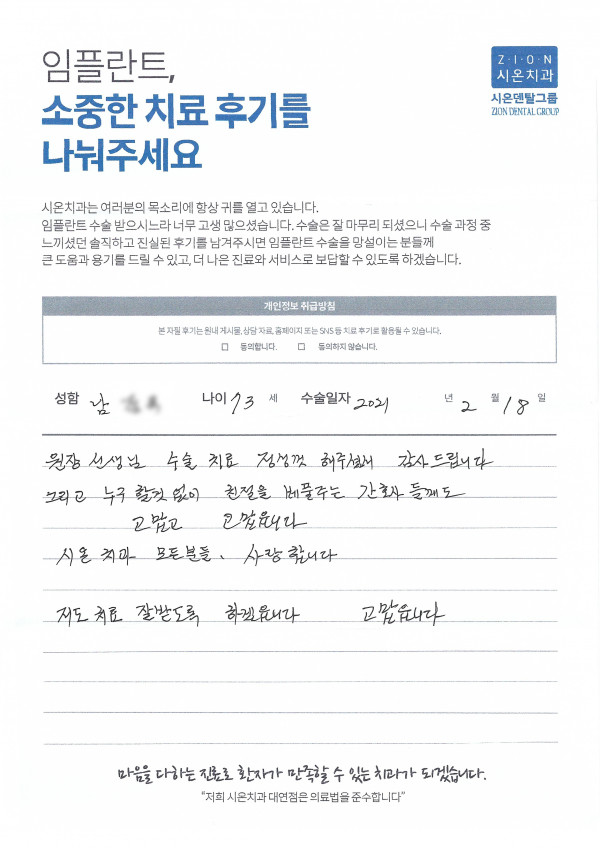 임플란트,
소중한 치료 후기를
나눠주세요
Z·I·O·N
시온치과
시온덴탈그룹
ZION DENTAL GROUP
시온치과는 여러분의 목소리에 항상 귀를 열고 있습니다.
임플란트 수술 받으시느라 너무 고생 많으셨습니다. 수술은 잘 마무리 되셨으니 수술 과정 중
느끼셨던 솔직하고 진실된 후기를 남겨주시면 임플란트 수술을 망설이는 분들께
큰 도움과 용기를 드릴 수 있고, 더 나은 진료와 서비스로 보답할 수 있도록 하겠습니다.
개인정보 취급방침
본 자필 후기는 원내 게시물, 상담 자료, 홈페이지 또는 SNS 등 치료 후기로 활용될 수 있습니다.
☐ 동의합니다. ☐ 동의하지 않습니다.
성함 남 나이 73 세 수술일자 2021 년 2 월 18 일
원장 선생님 수술 치료 정성껏 해주셔서 감사드립니다
그리고 누구 할것 없이 친절을 베풀주는 간호사 들께도
고맙고 고맙읍니다
시온 치과 모든분들、 사랑합니다
저도 치료 잘받도록 하겠읍니다 고맙읍니다
마음을 다하는 진료로 환자가 만족할 수 있는 치과가 되겠습니다.
“저희 시온치과 대연점은 의료법을 준수합니다”